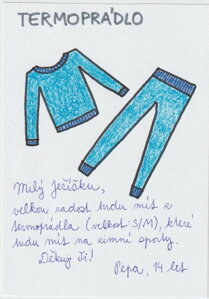 TERMOPRÁDLO
Milý Ježíšku,
velkou radost budu mít z
termoprádla (velikost S/M), které
budu mít na zimní sporty.
Děkuji Ti!
Pepa, 14 let